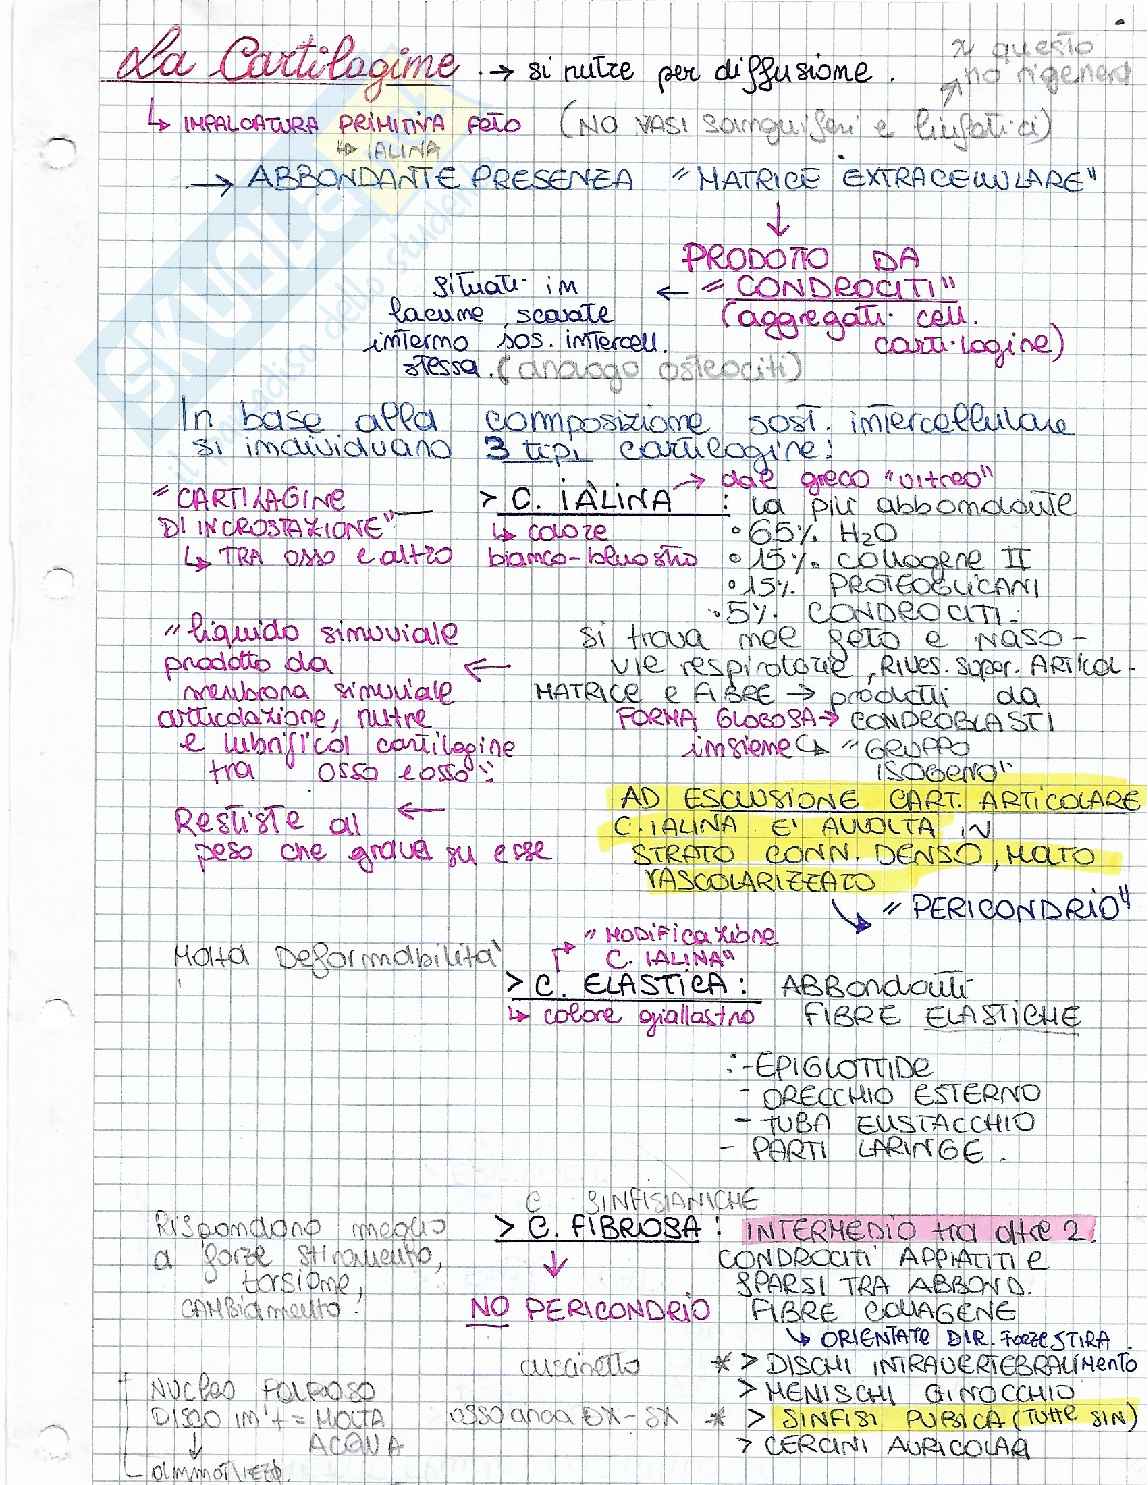 La Cartilagine → si nutre per diffusione.
x questo
no rigenera
↳ IMPALCATURA PRIMITIVA FETO (NO VASI sanguiferi e linfatici)
↳ IALINA
→ ABBONDANTE PRESENZA "MATRICE EXTRACELLULARE"
↓
PRODOTTO DA
situati in ← "CONDROCITI"
lacune scavate (aggregati cell.
interno sos. intercell. cartilagine)
stessa. (analogo osteociti)
In base alla composizione sost. intercellulare
si individuano 3 tipi cartilagine:
→ dal greco "vitreo"
"CARTILAGINE > C. IALINA : la più abbondante
DI INCROSTAZIONE" ↳ colore • 65% H2O
↳ TRA OSSO e altro bianco-bluastro • 15% collagene II
• 15% PROTEOGLICANI
• 5% CONDROCITI.
"liquido sinuviale si trova nel feto e NASO-
prodotto da ← vie respiratorie, RIVES. super. ARTICOL-
membrana sinuviale MATRICE e FIBRE → prodotti da
articolazione, nutre FORMA GLOBOSA → CONDROBLASTI
e lubrifica cartilagine insieme ↳ "GRUPPO
tra osso e osso" ISOGENO"
AD ESCLUSIONE CART. ARTICOLARE
Resiste al ← C. IALINA E' AVVOLTA IN
peso che grava su esse STRATO CONN. DENSO, MOLTO
VASCOLARIZZATO
↘ "PERICONDRIO"
"MODIFICAZIONE
Molta Deformabilità C. IALINA"
> C. ELASTICA : ABBondanti
↳ colore giallastro FIBRE ELASTICHE
:-EPIGLOTTIDE
- ORECCHIO ESTERNO
- TUBA EUSTACCHIO
- PARTI LARINGE.
C SINFISIANICHE
Rispondono meglio > C. FIBROSA : INTERMEDIO tra altre 2.
a forze stiramento, ↓ CONDROCITI APPIATTITI e
torsione, SPARSI TRA ABBOND.
CAMBIAMENTO. NO PERICONDRIO FIBRE COLLAGENE
↳ ORIENTATE DIR. FORZE STIRA
cuscinetto * > DISCHI INTRAVERTEBRALI mento
NUCLEO POLPOSO > MENISCHI GINOCCHIO
DISCO int = MOLTA osso anca DX-SX * > SINFISI PUBICA (TUTTE SIN)
↓ ACQUA > CERCINI AURICOLARI